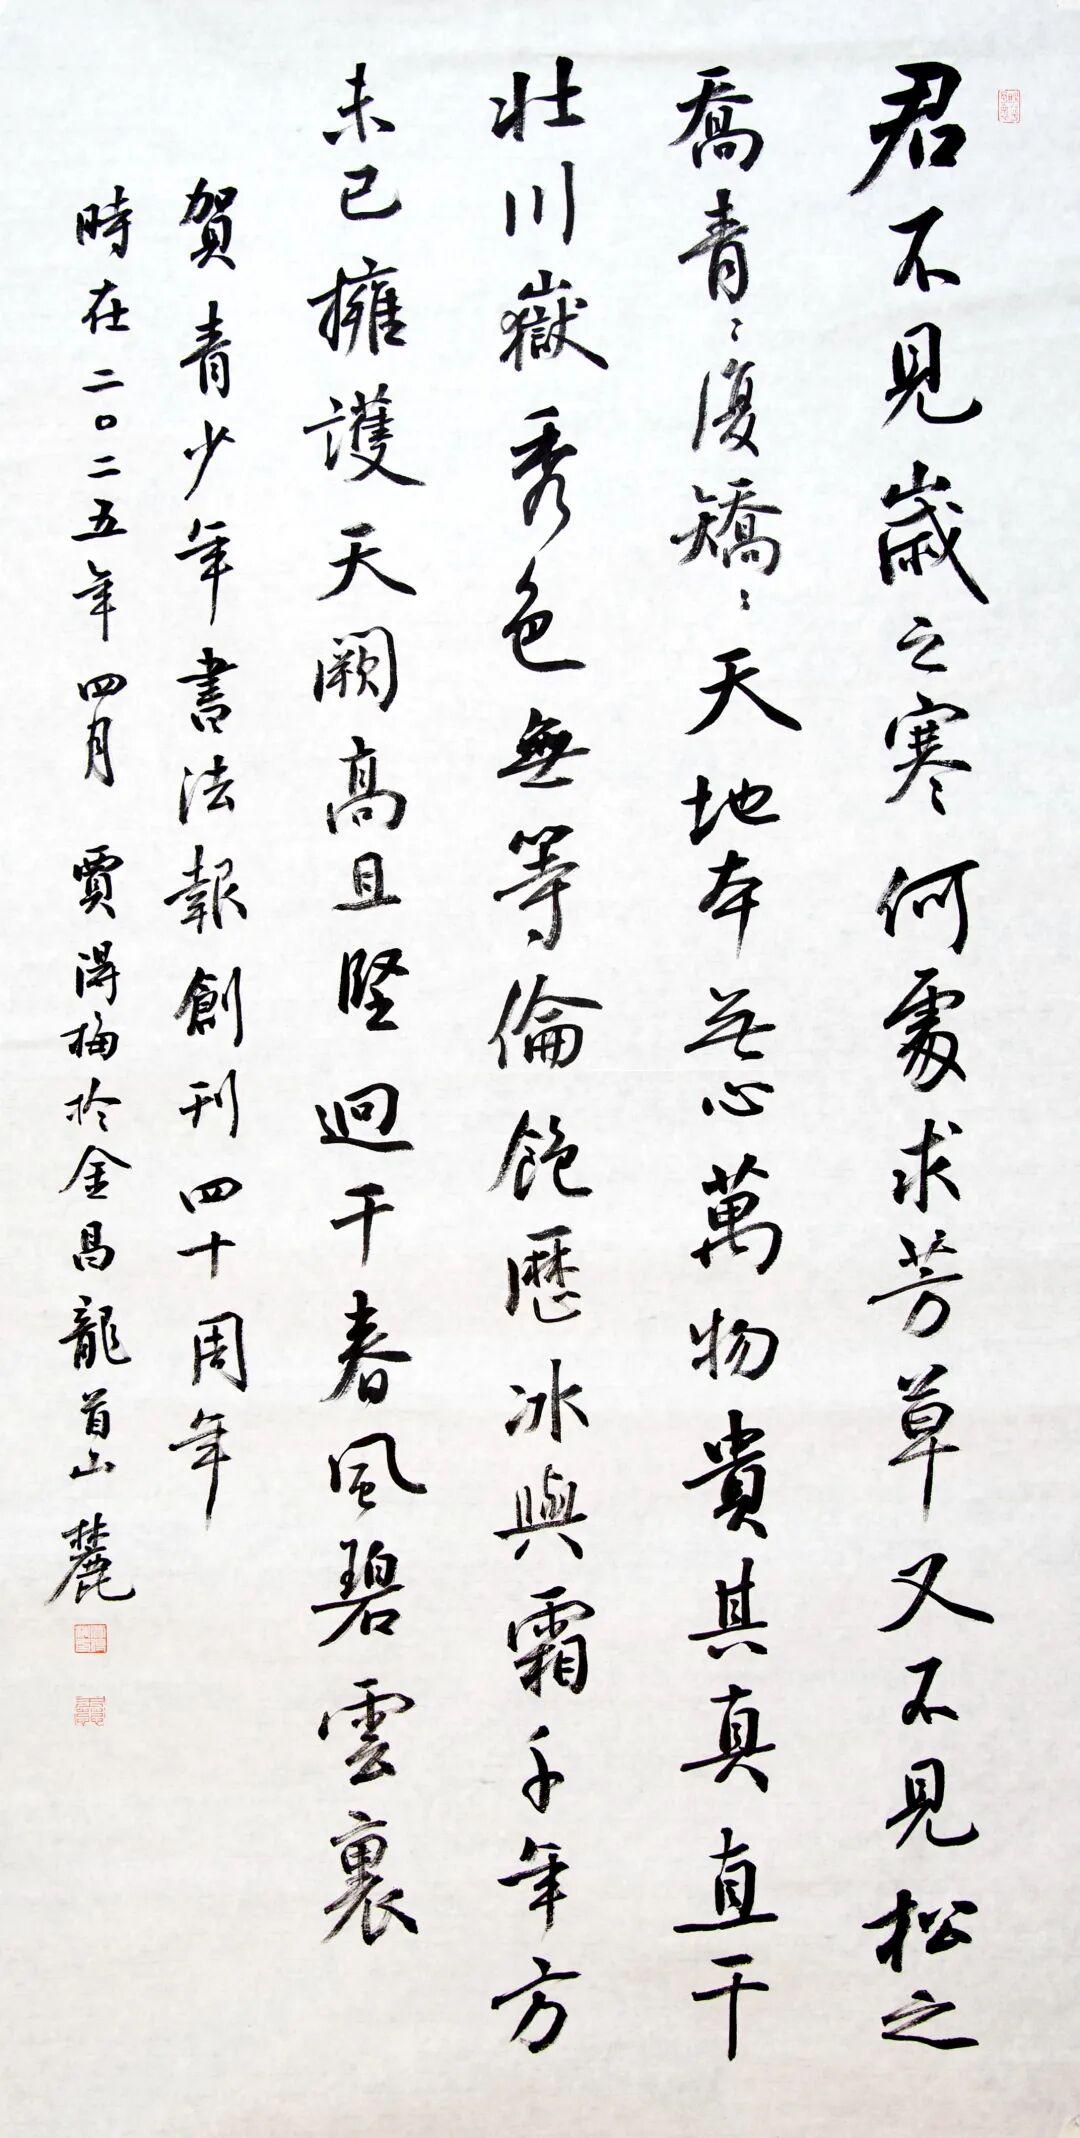 君不見歲之寒何處求芳草又不見松之
喬青〻復矯〻天地本無心萬物貴其真直干
壯川嶽秀色無等倫飽歷冰與霜千年方
未已擁護天闕高且堅迥干春風碧雲裏
賀青少年書法報創刊四十周年
時在二〇二五年四月 賈得梅於金昌龍首山麓